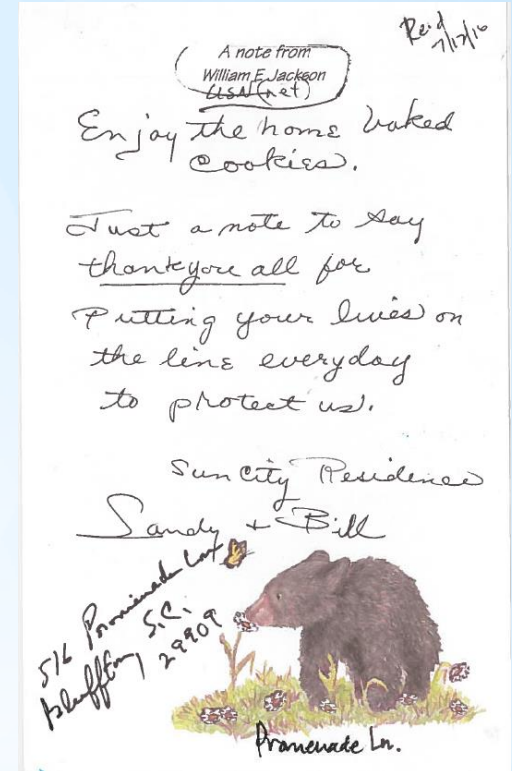 Rec'd
7/12/16
A note from
William E. Jackson
USN (ret)
Enjoy the home baked
cookies.
Just a note to say
thankyou all for
Putting your lives on
the line everyday
to protect us.
Sun City Residence
Sandy + Bill
516 Promenade Ln
Bluffton, S.C.
29909
Promenade Ln.